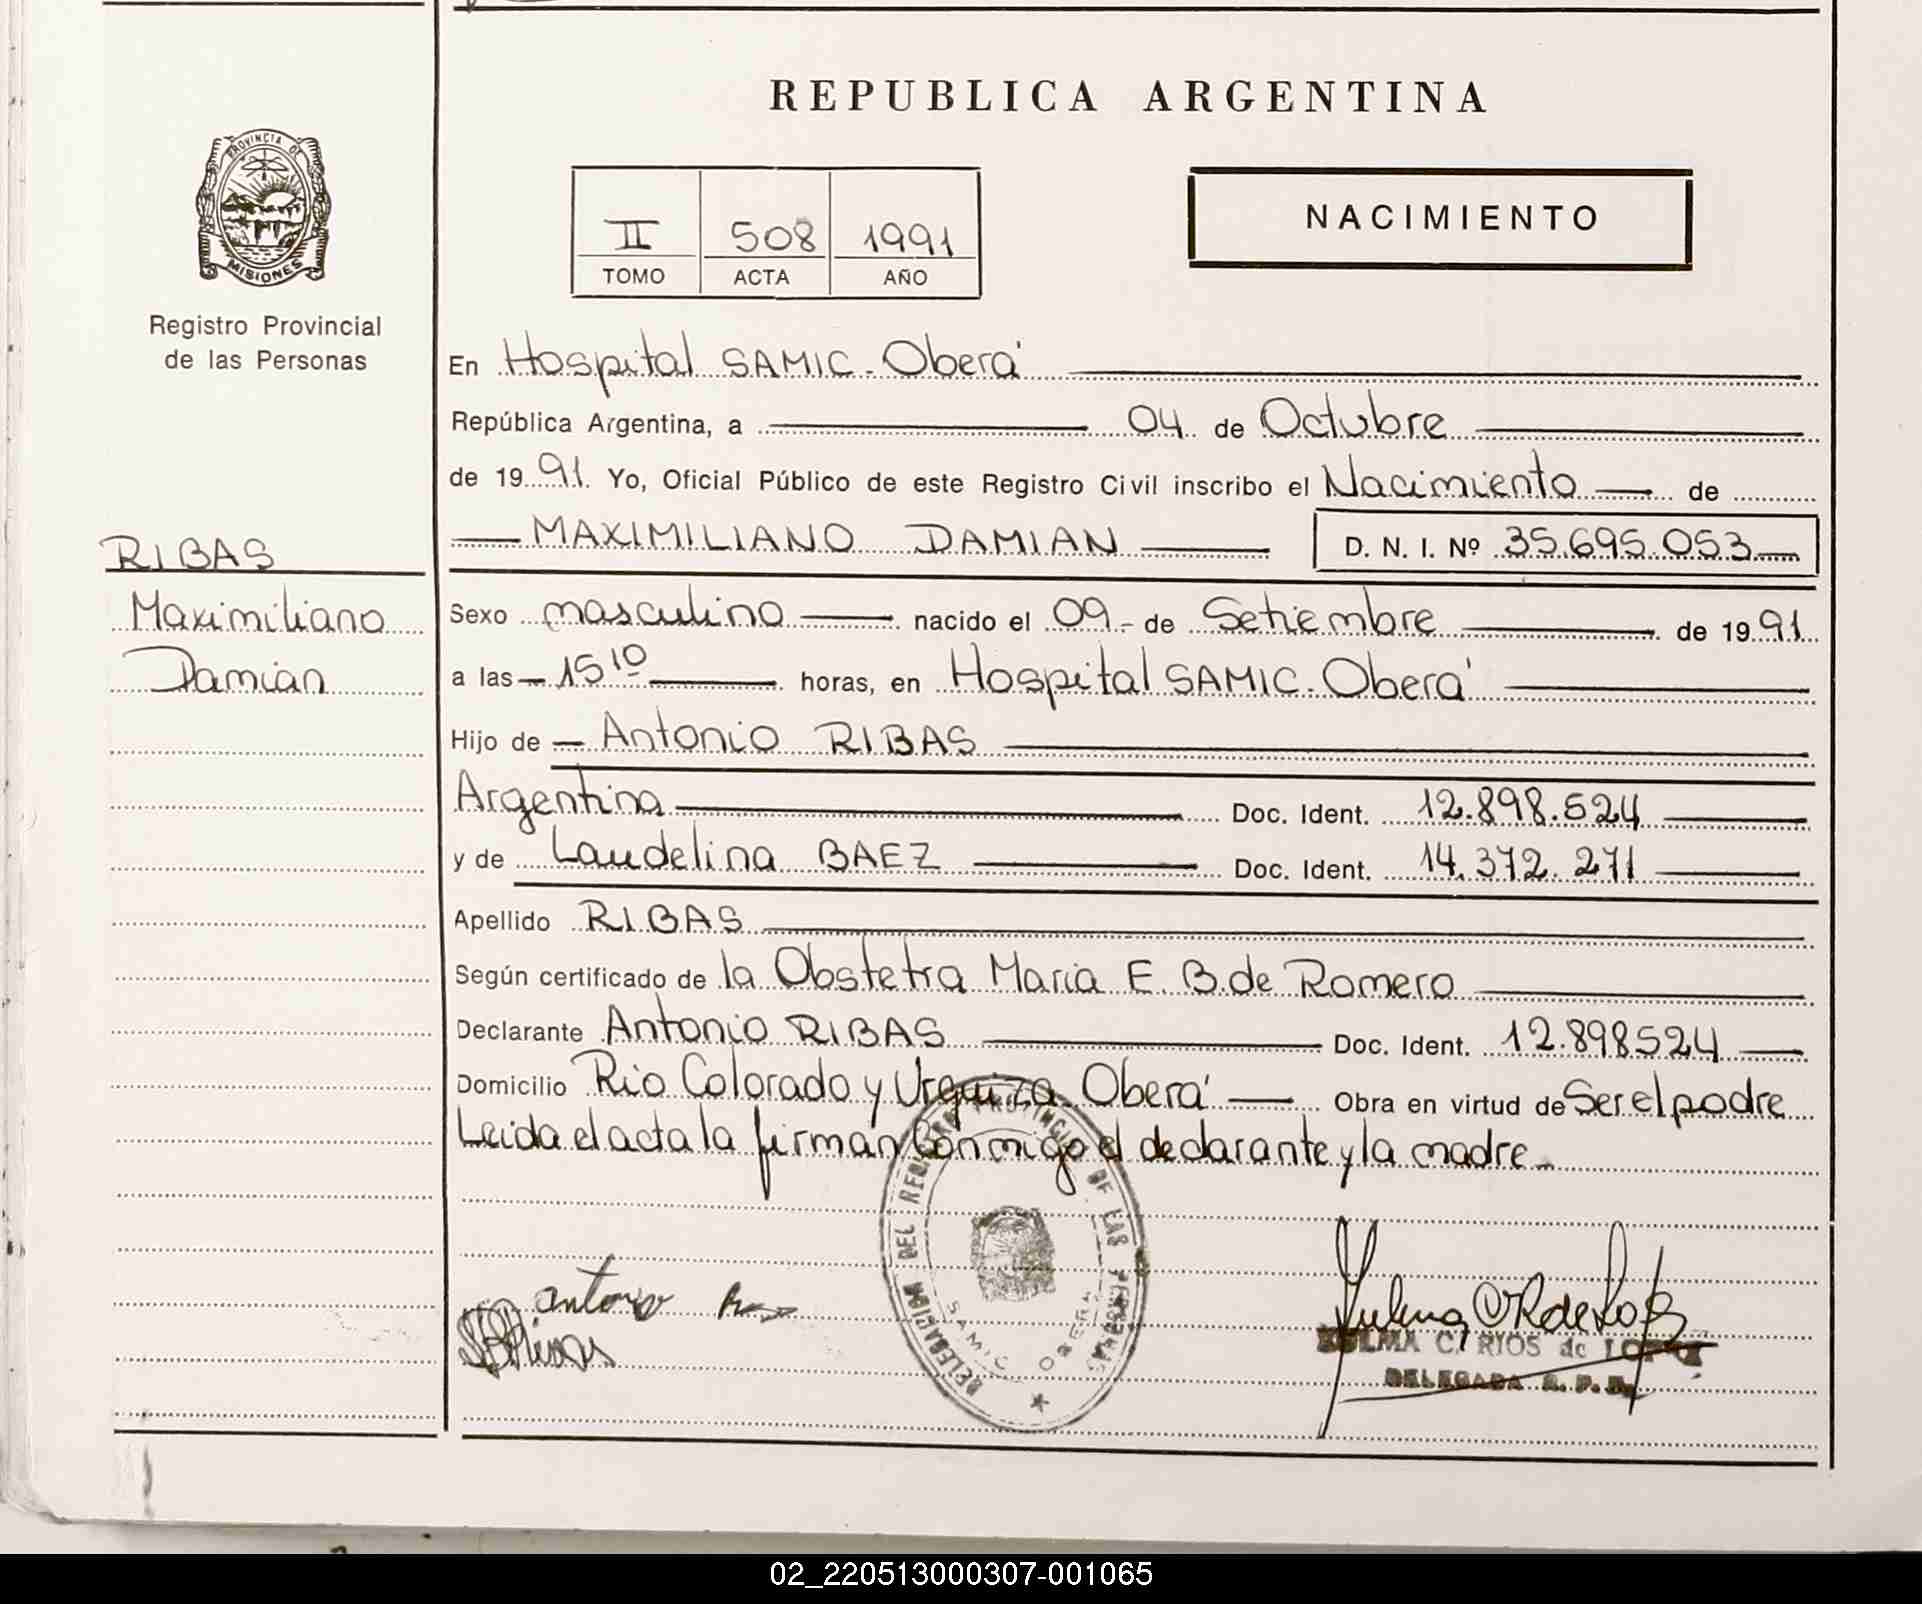 REPUBLICA ARGENTINA
PROVINCIA DE
MISIONES
Registro Provincial
de las Personas
II 508 1991
TOMO ACTA AÑO
NACIMIENTO
En Hospital SAMIC - Oberá
República Argentina, a 04 de Octubre
de 1991 Yo, Oficial Público de este Registro Civil inscribo el Nacimiento de
MAXIMILIANO DAMIAN D. N. I. Nº 35.695.053
RIBAS
Maximiliano
Damian
Sexo masculino nacido el 09 - de Setiembre de 1991
a las 15 10 horas, en Hospital SAMIC - Oberá
Hijo de Antonio RIBAS
Argentina Doc. Ident. 12.898.524
y de Laudelina BAEZ Doc. Ident. 14.372.271
Apellido RIBAS
Según certificado de la Obstetra Maria E. B. de Romero
Declarante Antonio RIBAS Doc. Ident. 12.898524
Domicilio Rio Colorado y Urquiza - Oberá Obra en virtud de Ser el padre
Leida el acta la firman Conmigo el declarante y la madre
DELEGACION DEL REGISTRO PROVINCIAL DE LAS PERSONAS
SAMIC OBERA
antonio
C. RIOS de LOPEZ
DELEGADA R. P. P.
02_220513000307-001065